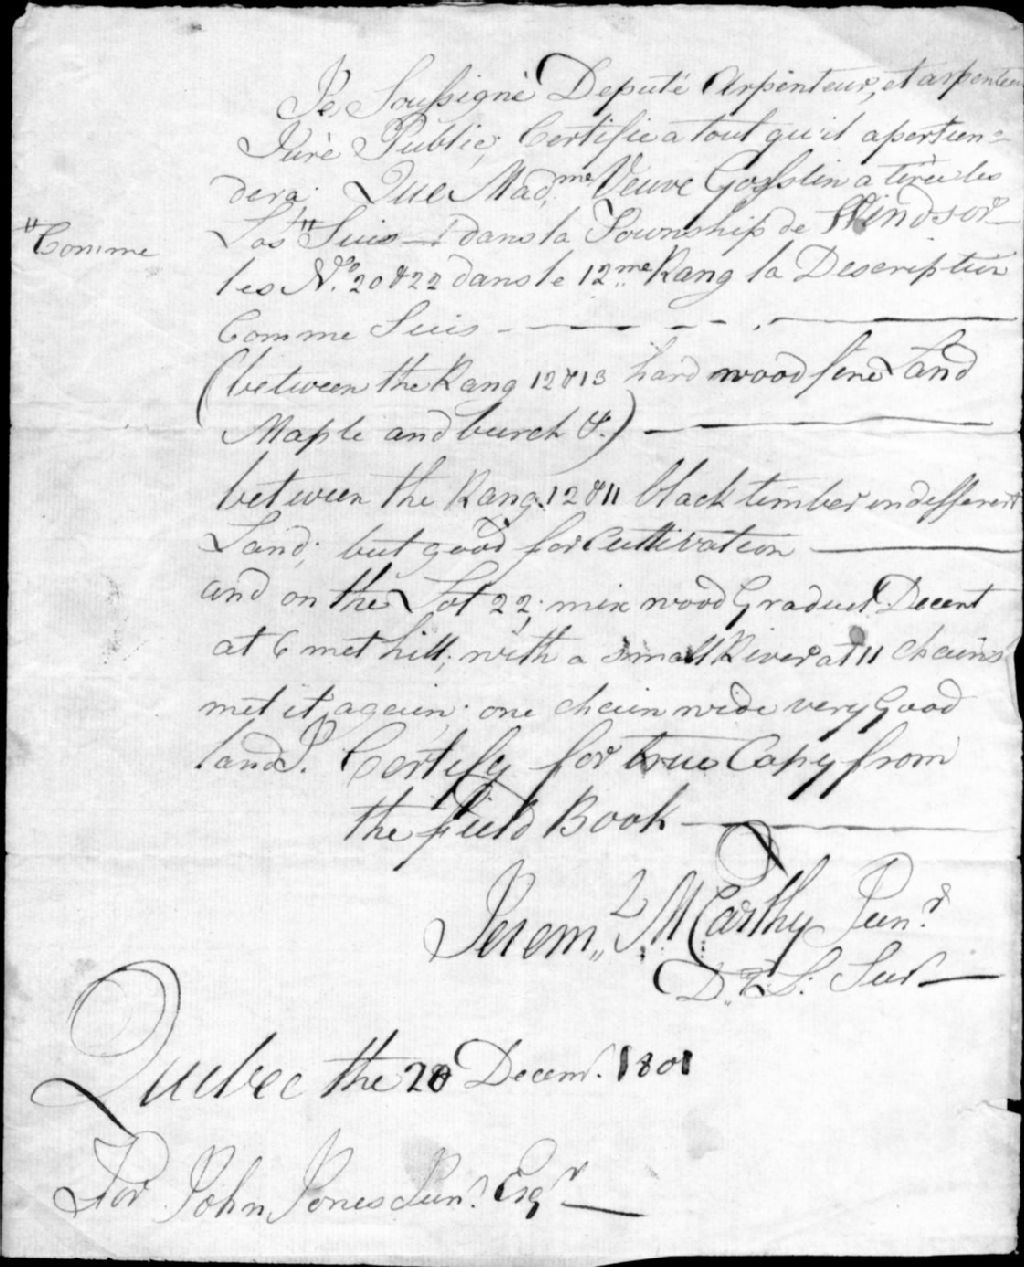 Je Soussigné Deputé Arpenteur, et arpenteur
Juré Public, Certifie a tout qu'il apertien=
dera, Que Mad.me Veuve Gosselin a tirée les
"Comme
Los "Suis — dans la Township de Windsor
les No. 20 & 22 dans le 12.me Rang la Descriptien
Comme Suis
(between the Rang 12 & 13 hard wood fine Land
Maple and burch &.)
between the Rang. 12 & 11 black timber indifferent
Land, but good for Cultivation
and on the Lot 22; mix wood Graduel Decent
at 6 met hill; with a small River at 11 chains
met it again; one chain wide very Good
land J. Certify for true Copy from
the field Book
Jerem,, McCarthy Jun.r
D. P. S. Sur
Quebec the 28 Decem.r 1801
For John Jones Jun.r Esq.r